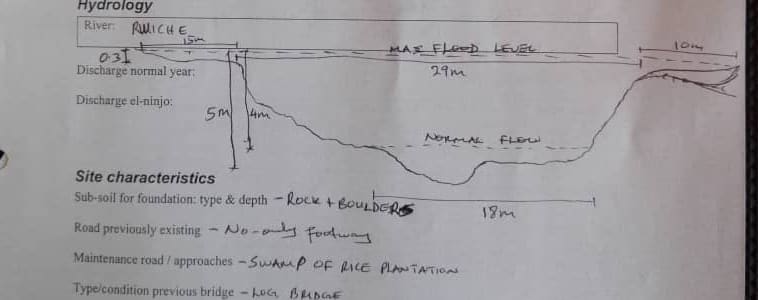 Hydrology
River: RUICHE
15m
10m
0.3
MAX FLOOD LEVEL
Discharge normal year:
29m
Discharge el-ninjo:
5m
4m
NORMAL FLOW
Site characteristics
Sub-soil for foundation: type & depth - ROCK + BOULDERS
18m
Road previously existing - No - only footway
Maintenance road / approaches - SWAMP OF RICE PLANTATION
Type/condition previous bridge - LOG BRIDGE